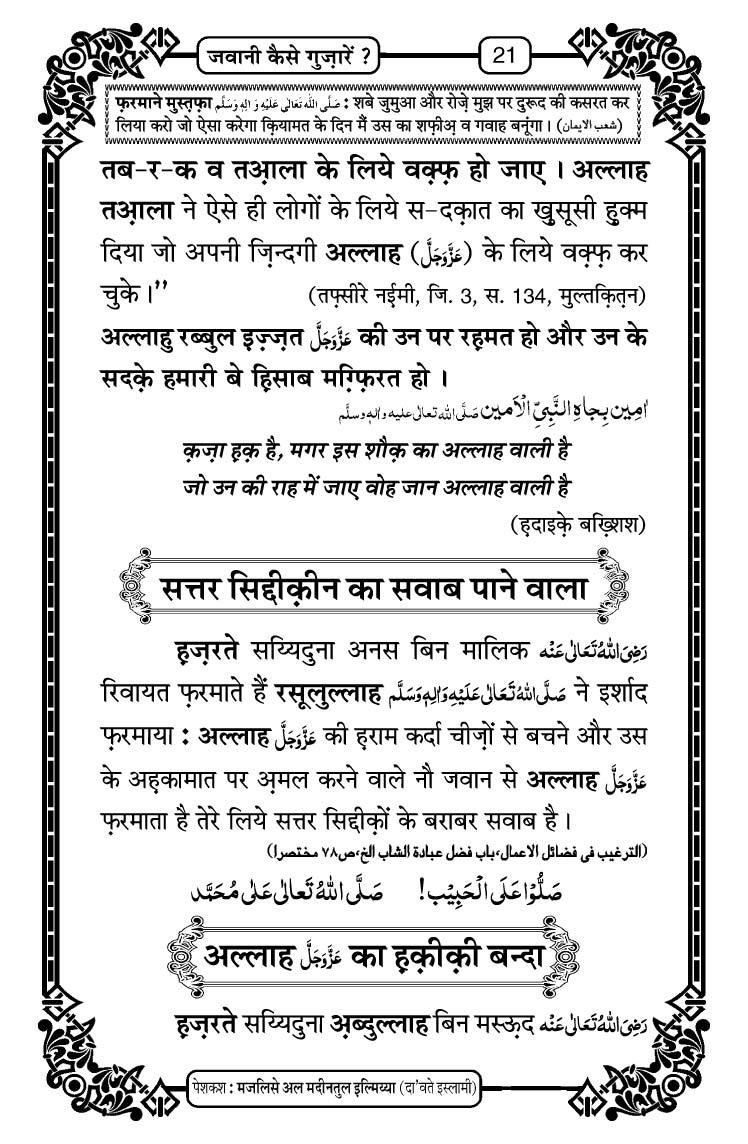 जवानी कैसे गुज़ारें ?
21
फ़रमाने मुस्तफ़ा صَلَّى اللّٰهُ تَعَالٰى عَلَيْهِ وَاٰلِهٖ وَسَلَّم : शबे जुमुआ और रोज़े मुझ पर दुरूद की कसरत कर
लिया करो जो ऐसा करेगा क़ियामत के दिन मैं उस का शफ़ीअ़ व गवाह बनूंगा । (شعب الايمان)
तब-र-क व तआ़ला के लिये वक़्फ़ हो जाए । अल्लाह
तआ़ला ने ऐसे ही लोगों के लिये स-दक़ात का ख़ुसूसी हुक्म
दिया जो अपनी ज़िन्दगी अल्लाह (عَزَّوَجَلَّ) के लिये वक़्फ़ कर
चुके ।"
(तफ़्सीरे नईमी, जि. 3, स. 134, मुल्तक़ित़न)
अल्लाहु रब्बुल इज़्ज़त عَزَّوَجَلَّ की उन पर रह़मत हो और उन के
सदक़े हमारी बे ह़िसाब मग़्फ़िरत हो ।
اٰمِين بِجاهِ النَّبِيِّ الْاَمين صَلَّى اللّٰه تعالٰى عليه واٰلهٖ وسلَّم
क़ज़ा ह़क़ है, मगर इस शौक़ का अल्लाह वाली है
जो उन की राह में जाए वोह जान अल्लाह वाली है
(ह़दाइक़े बख़्शिश)
सत्तर सिद्दीक़ीन का सवाब पाने वाला
ह़ज़रते सय्यिदुना अनस बिन मालिक رَضِىَ اللّٰهُ تَعَالٰى عَنْه
रिवायत फ़रमाते हैं रसूलुल्लाह صَلَّى اللّٰهُ تَعَالٰى عَلَيْهِ وَاٰلِهٖ وَسَلَّم ने इर्शाद
फ़रमाया : अल्लाह عَزَّوَجَلَّ की ह़राम कर्दा चीज़ों से बचने और उस
के अह़कामात पर अ़मल करने वाले नौ जवान से अल्लाह عَزَّوَجَلَّ
फ़रमाता है तेरे लिये सत्तर सिद्दीक़ों के बराबर सवाब है ।
(الترغيب فى فضائل الاعمال،باب فضل عبادة الشاب الخ،ص٧٨ مختصرا)
صَلُّوْا عَلَى الْحَبِيْب! صَلَّى اللّٰهُ تَعَالٰى عَلٰى مُحَمَّد
अल्लाह عَزَّوَجَلَّ का ह़क़ीक़ी बन्दा
ह़ज़रते सय्यिदुना अ़ब्दुल्लाह बिन मस्ऊ़द رَضِىَ اللّٰهُ تَعَالٰى عَنْه
पेशकश : मजलिसे अल मदीनतुल इल्मिय्या (दा'वते इस्लामी)